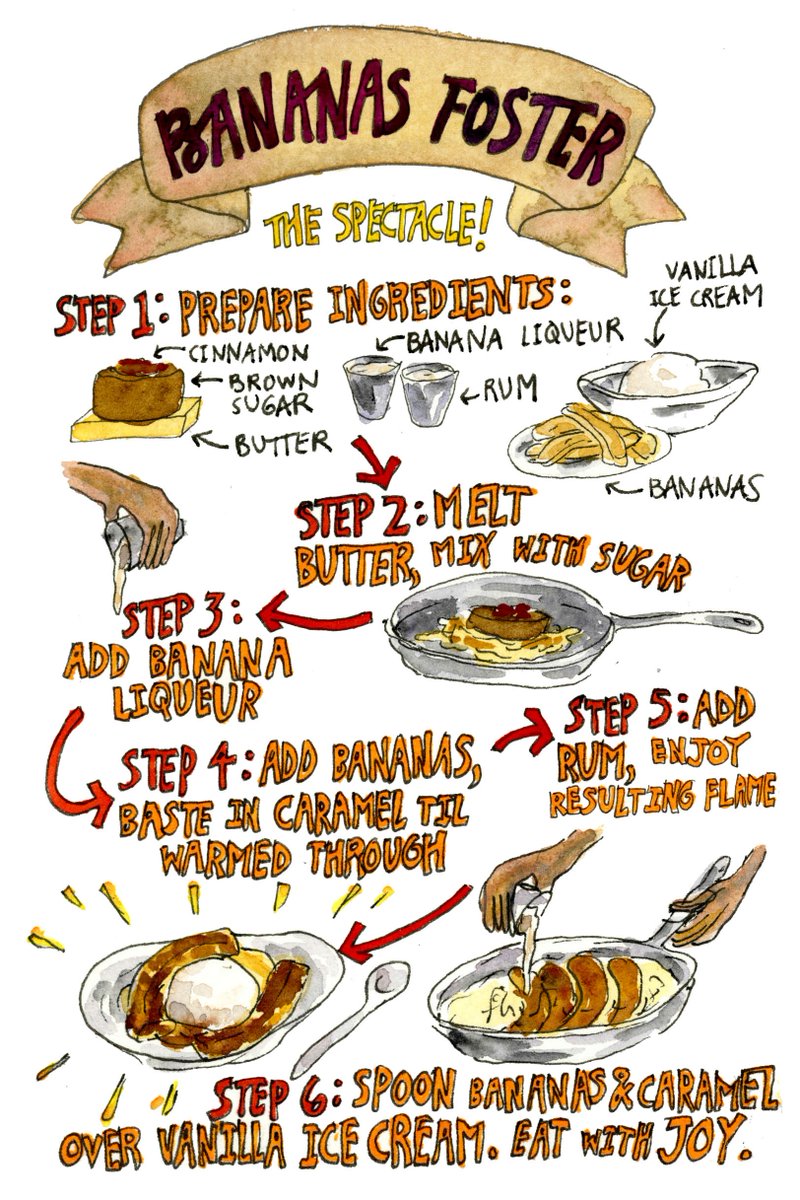 BANANAS FOSTER
THE SPECTACLE!
STEP 1: PREPARE INGREDIENTS:
VANILLA
ICE CREAM
CINNAMON
BROWN
SUGAR
BUTTER
BANANA LIQUEUR
RUM
BANANAS
STEP 2: MELT
BUTTER, MIX WITH SUGAR
STEP 3:
ADD BANANA
LIQUEUR
STEP 4: ADD BANANAS,
BASTE IN CARAMEL TIL
WARMED THROUGH
STEP 5: ADD
RUM, ENJOY
RESULTING FLAME
STEP 6: SPOON BANANAS & CARAMEL
OVER VANILLA ICE CREAM. EAT WITH JOY.